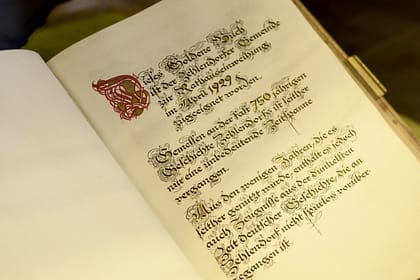 Das Goldene Buch
ist der Zehlendorfer Gemeinde
zur Rathauseinweihung
im April 1929
zugeeignet worden.
Gemessen an der fast 750 jährigen
Geschichte Zehlendorfs ist seither
nur eine unbedeutende Zeitspanne
vergangen.
Aus den wenigen Jahren, die es
seither genutzt wurde, enthält es jedoch
auch Zeugnisse aus der dunkelsten
Zeit deutscher Geschichte, die an
Zehlendorf nicht spurlos vorüber-
gegangen ist.